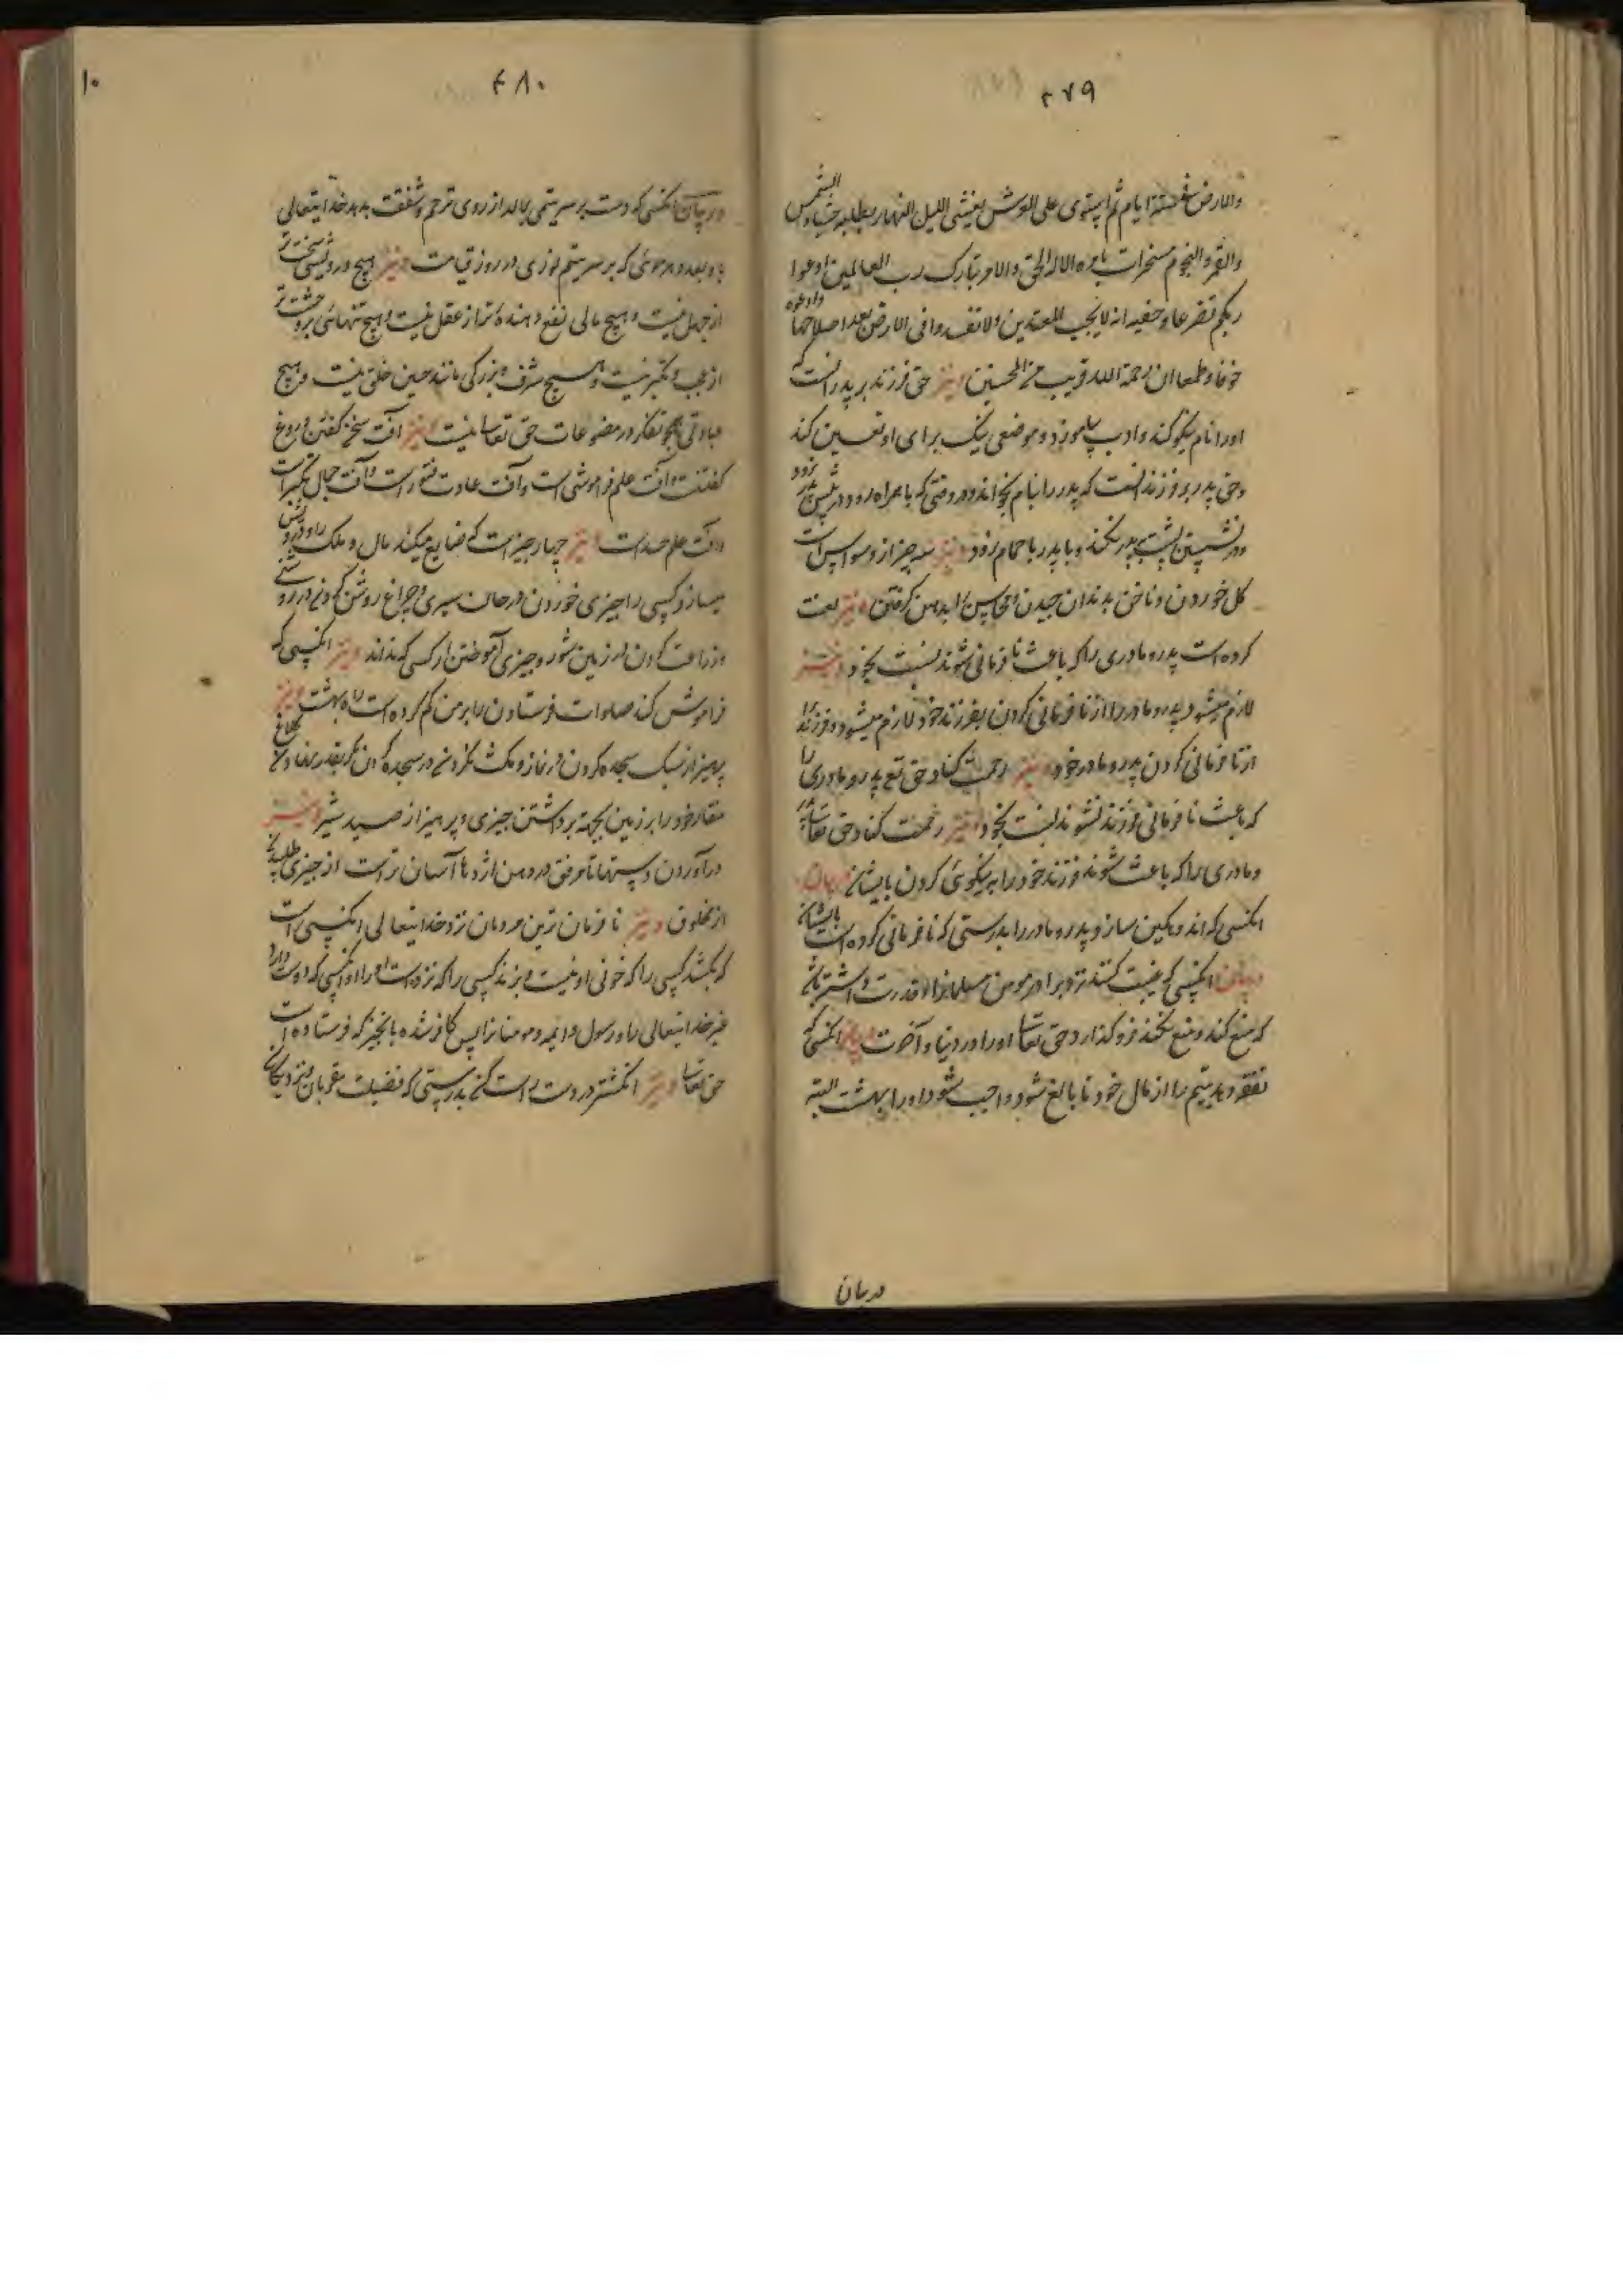 ۴۷۹
والارض فی ستة ایام ثم استوی علی العرش یغشی اللیل النهار یطلبه حثیثا والشمس
والقمر والنجوم مسخرات بامره الا له الخلق والامر تبارک رب العالمین ادعوا
ربکم تضرعا وخفیه انه لا یحب المعتدین ولا تفسدوا فی الارض بعد اصلاحها وادعوه
خوفا وطمعا ان رحمة الله قریب من المحسنین ونیز حق فرزند بر پدر آنست که
او را نام نیکو کند و ادب بیاموزد و موضعی نیک برای او تعیین کند
وحق پدر بر فرزند آنست که پدر را بنام نخواند و در وقتی که با همراه رود در پیش پدر نرود
و در نشستن پشت بپدر نکند و با پدر بحمام نرود ونیز سه چیز از وسواس است
کل خوردن و ناخن بدندان چیدن و محاسن را بدهن کرفتن ونیز لعنت
کرده است پدر و مادری را که باعث نافرمانی شوند نسبت بخود ونیز
لازم میشود پدر و مادر را از نافرمانی کردن بفرزند خود لازم میشود فرزند را
از نافرمانی کردن پدر و مادر خود ونیز رحمت کناد حق تع پدر و مادری را
که باعث نافرمانی فرزند نشوند نسبت بخود ونیز رحمت کناد حق تعالی
و مادری را که باعث شوند فرزند خود را بر نیکوئی کردن بایشان در بیان
آنکسی که اندوهکین سازد پدر و مادر را بدرستی که نافرمانی کرده است بایشان
در بیان آنکسی که غیبت کنند نزد او برادر مومن مسلمانرا و قدرت داشته باشد
که منع کند و منع نکند فرو کذارد حق تعالی او را در دنیا و آخرت در بیان آنکسی که
نفقه دهد یتیم را از مال خود تا بالغ شود واجب شود او را بهشت البته
در بیان
۴۸۰
۱۰
در بیان آنکسی که دست بر سر یتیمی بمالد از روی ترحم و شفقت بدهد خدایتعالی
باو بعدد هر موئی که بر سر یتیم نوری در روز قیامت ونیز هیچ درویشی سخت‌تر
از جهل نیست و هیچ مالی نفع دهنده‌تر از عقل نیست و هیچ تنهائی وحشت‌تر
از عجب و تکبر نیست و هیچ شرف و بزرکی مانند حسن خلق نیست و هیچ
عبادتی همچو تفکر در مصنوعات حق تعالی نیست ونیز آفت سخن کفتن دروغ
کفتنست و آفت علم فراموشی است و آفت عبادت فتور است و آفت جمال تکبر است
و آفت علم حسد است ونیز چهار چیز است که ضایع میکند مال و ملک را
میسازد کسی را چیزی خوردن در حالت سیری و چراغ روشن کردن در روشنی
و زراعت کردن در زمین شور و چیزی آموختن از کسی که نداند ونیز آنکسی که
فراموش کند صلوات فرستادن را بر من کم کرده است راه بهشت ونیز
پرهیز از سبک سجده کردن در نماز و مکث نکردن در سجده کردن مکر بقدر نهادن کلاغ
منقار خود را بر زمین بجهة برداشتن چیزی و پرهیز از صید شیر ونیز
درآوردن دستها تا مرفق در دهن اژدها آسان‌تر است از چیزی طلبیدن
از مخلوق ونیز نافرمان‌ترین مردمان نزد خدایتعالی آنکسی است
که بکشد کسی را که خونی او نیست و بزند کسی را که نزده است او را و آنکسی که دوست دارد
غیر خدایتعالی را و رسول و ائمه و مومنانرا پس کافر شده بانچیز که فرستاده است
حق تعالی ونیز انکشتر در دست راست کن بدرستی که فضیلت مقربان و نزدیکان